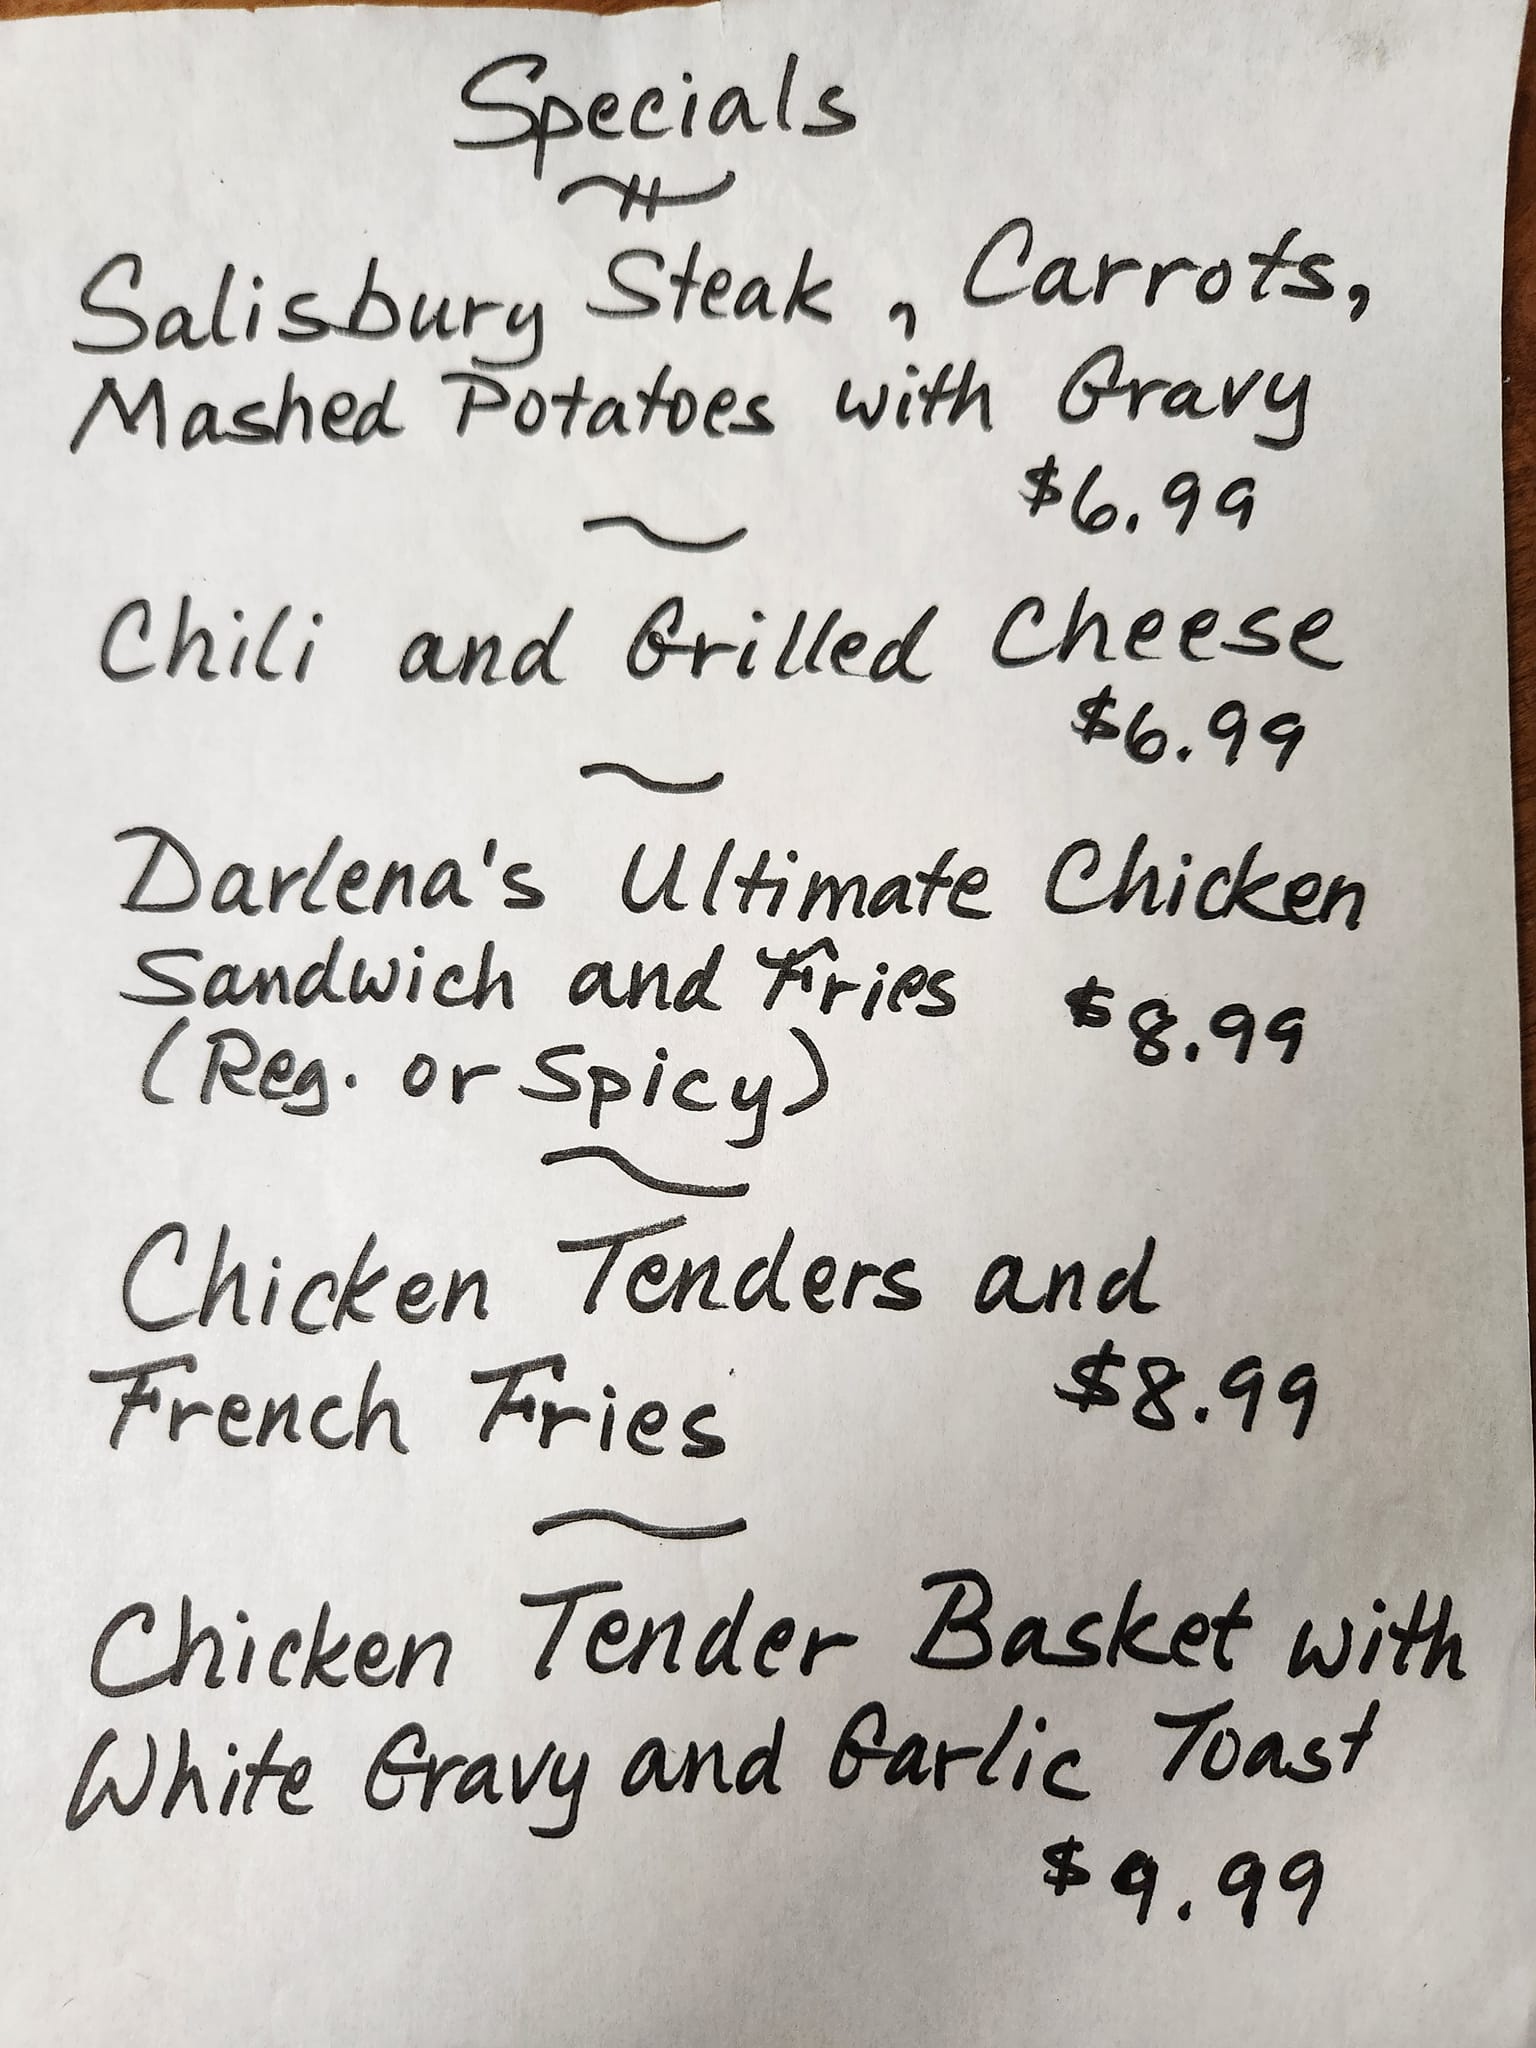 Specials
Salisbury Steak, Carrots,
Mashed Potatoes with Gravy
$6.99
Chili and Grilled Cheese
$6.99
Darlena's Ultimate Chicken
Sandwich and Fries $8.99
(Reg. or Spicy)
Chicken Tenders and
French Fries $8.99
Chicken Tender Basket with
White Gravy and Garlic Toast
$9.99